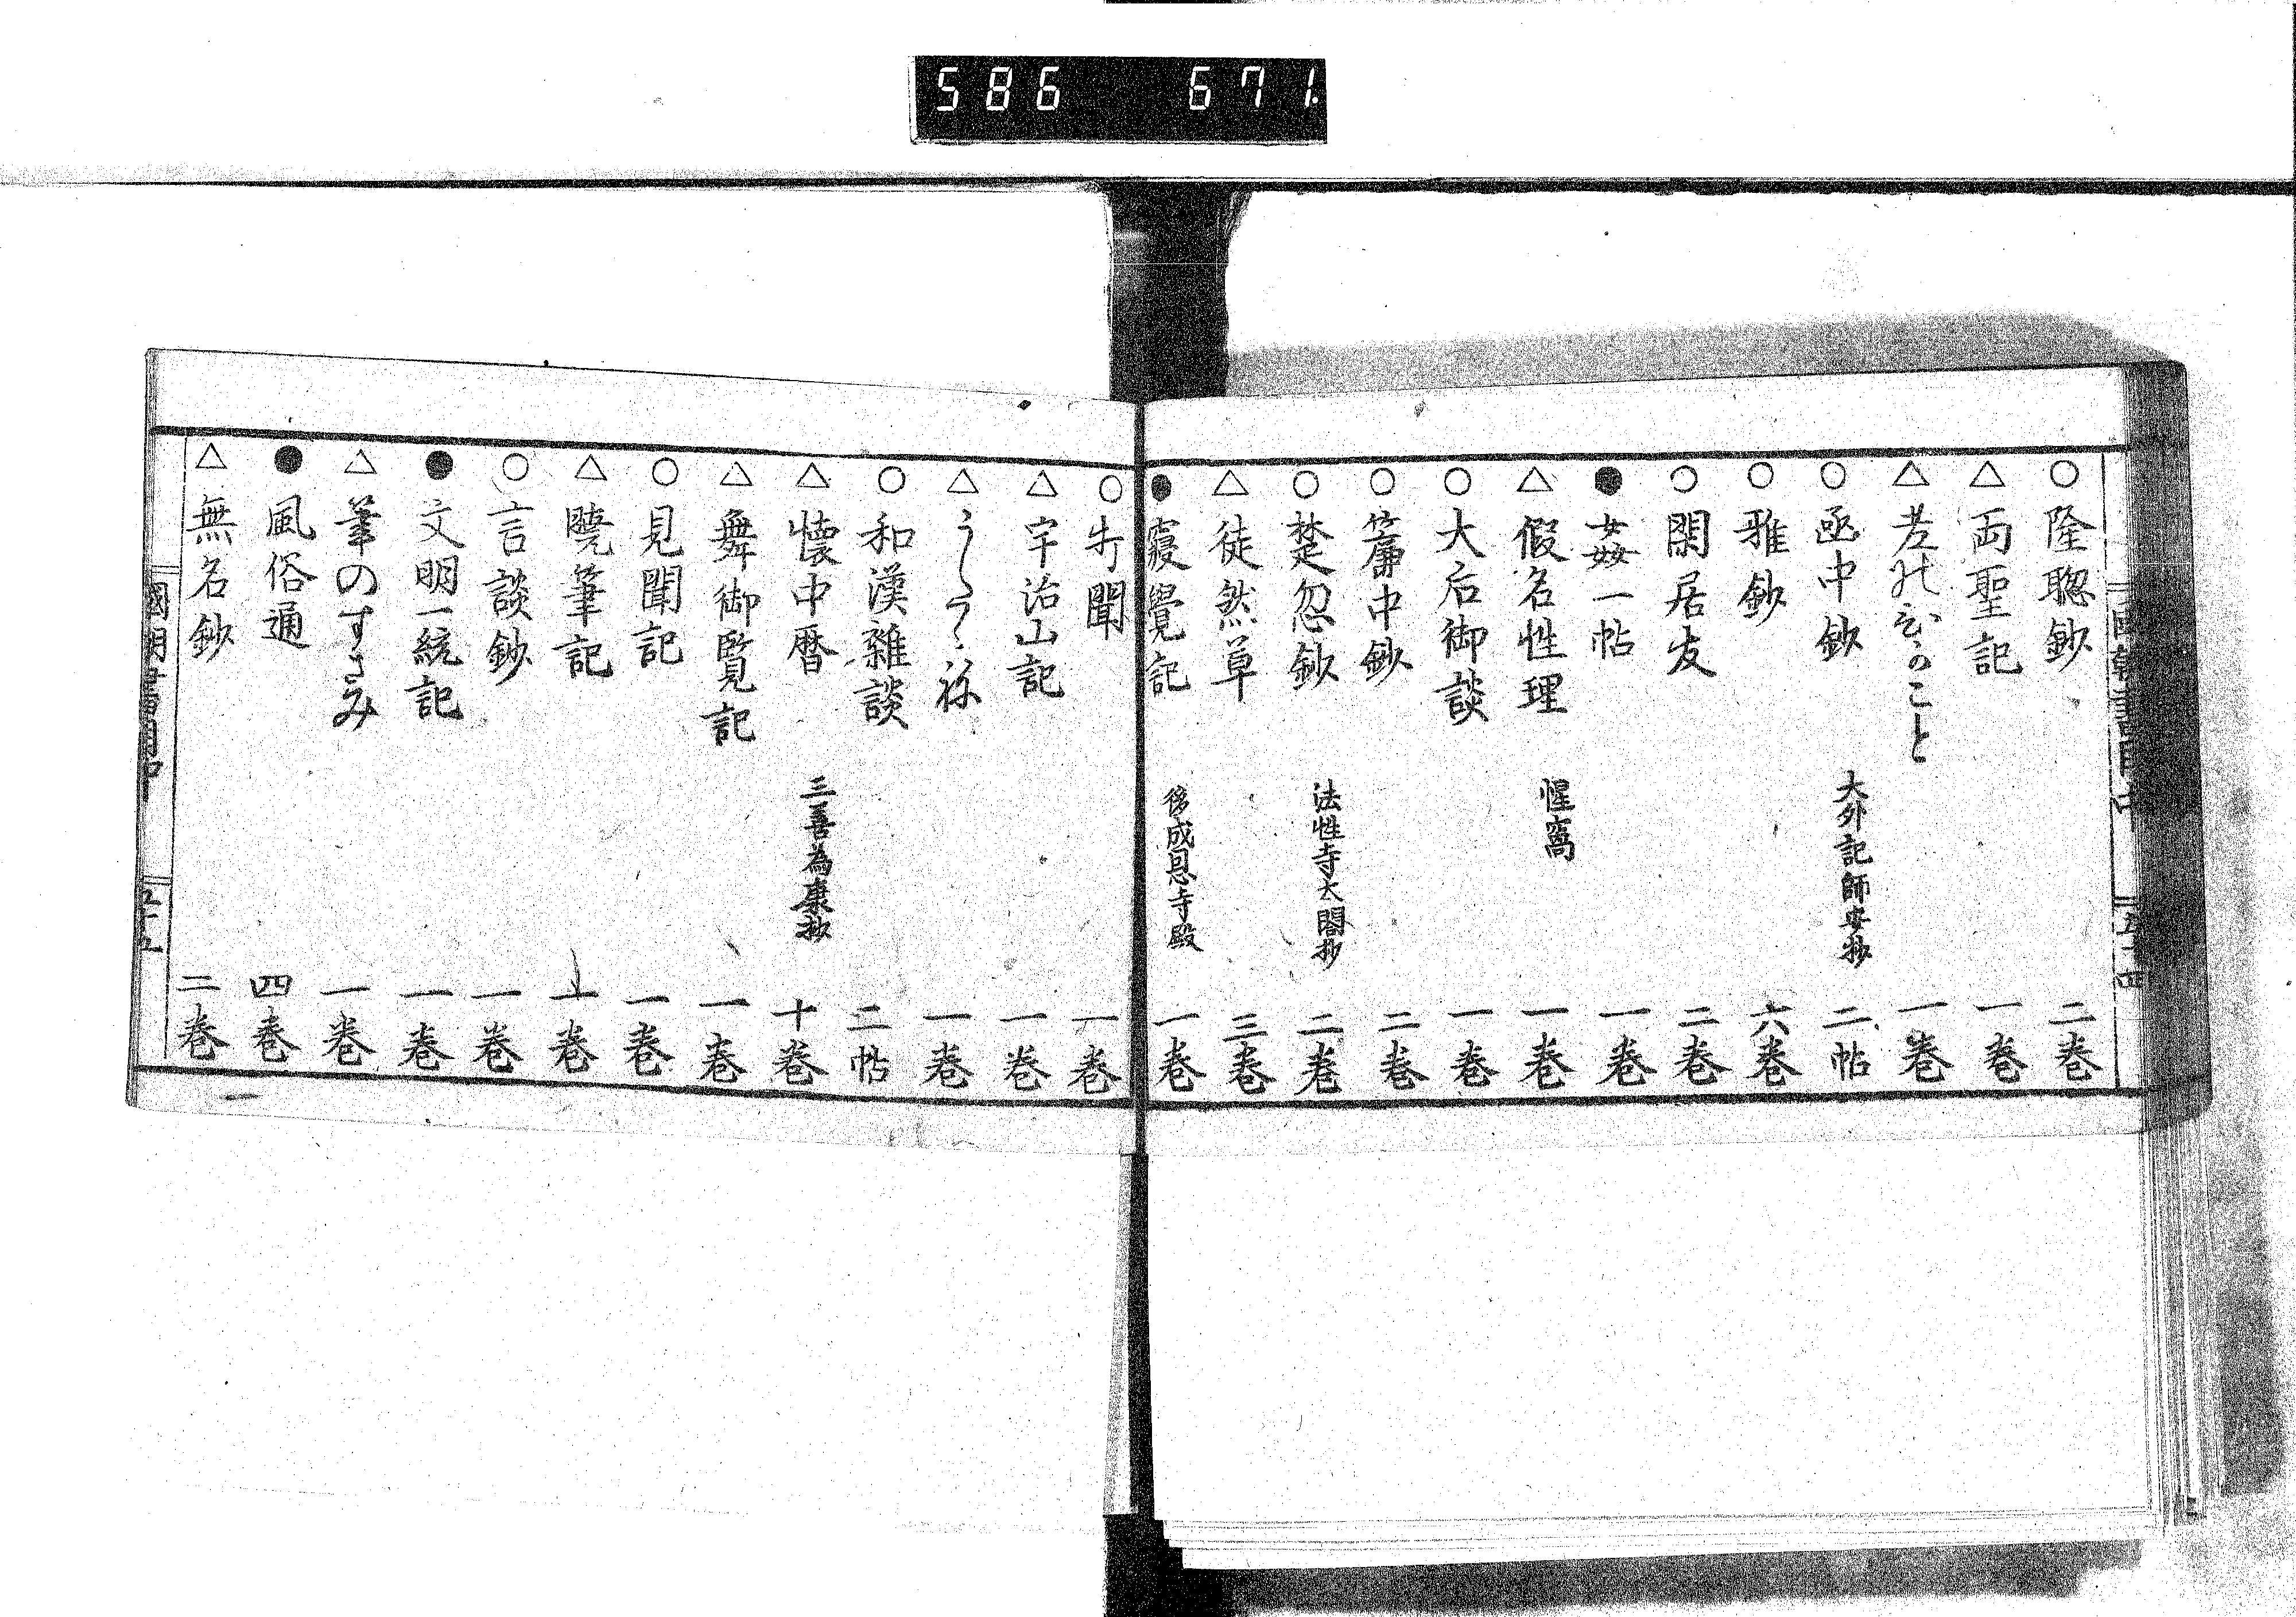 586 671.
○隆聡鈔 二巻
△両聖記 一巻
こと 一巻
○函中鈔 大外記師安抄 二帖
○雅鈔 六巻
○閑居友 二巻
●姦一帖 一巻
△假名性理 惺窩 一巻
○大后御談 一巻
○簾中鈔 二巻
○楚忽鈔 法性寺太閤抄 二巻
△徒然草 三巻
●寝覺記 後成恩寺殿 一巻
○聞 一巻
△宇治山記 一巻
△うしろ 一巻
○和漢雜談 二帖
△懐中暦 三善為康抄 十巻
△舞御覧記 一巻
○見聞記 一巻
△曉筆記 一巻
○言談鈔 一巻
●文明一統記 一巻
△筆のすさみ 一巻
●風俗通 四巻
△無名鈔 二巻